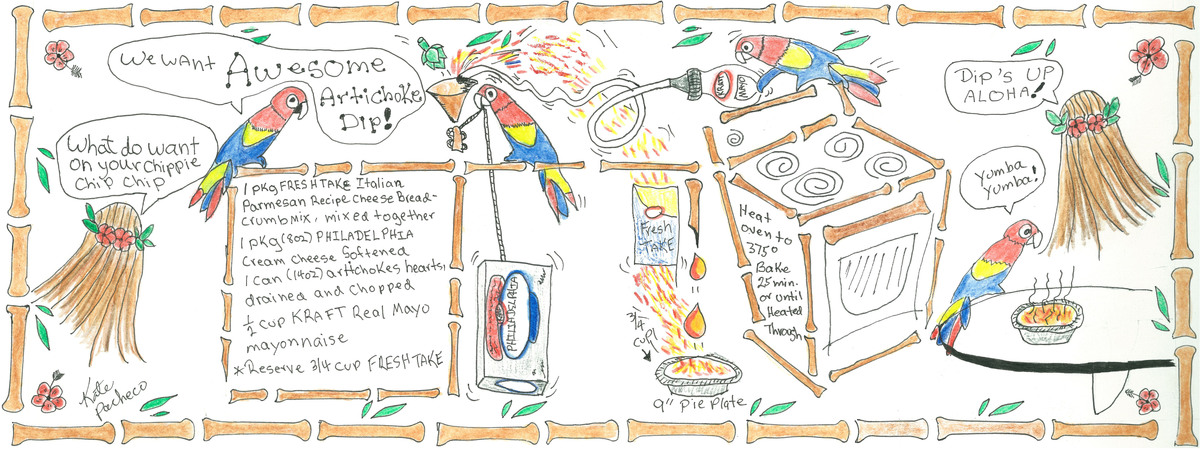 We want Awesome
Artichoke
Dip!
What do want
on your chippie
chip chip
1 pkg FRESH TAKE Italian
Parmesan Recipe Cheese Bread-
crumb mix, mixed together
1 pkg (8oz) PHILADELPHIA
Cream Cheese Softened
1 Can (14oz) artichokes hearts,
drained and chopped
1/2 cup KRAFT Real Mayo
mayonnaise
* Reserve 3/4 cup FRESH TAKE
Kate
Pacheco
PHILADELPHIA
KRAFT
MAYO
Fresh
TAKE
3/4
cup!
9" Pie Plate
Heat
oven to
375°
Bake
25 min.
or until
Heated
Through
Dip's UP
ALOHA!
Yumba
Yumba!